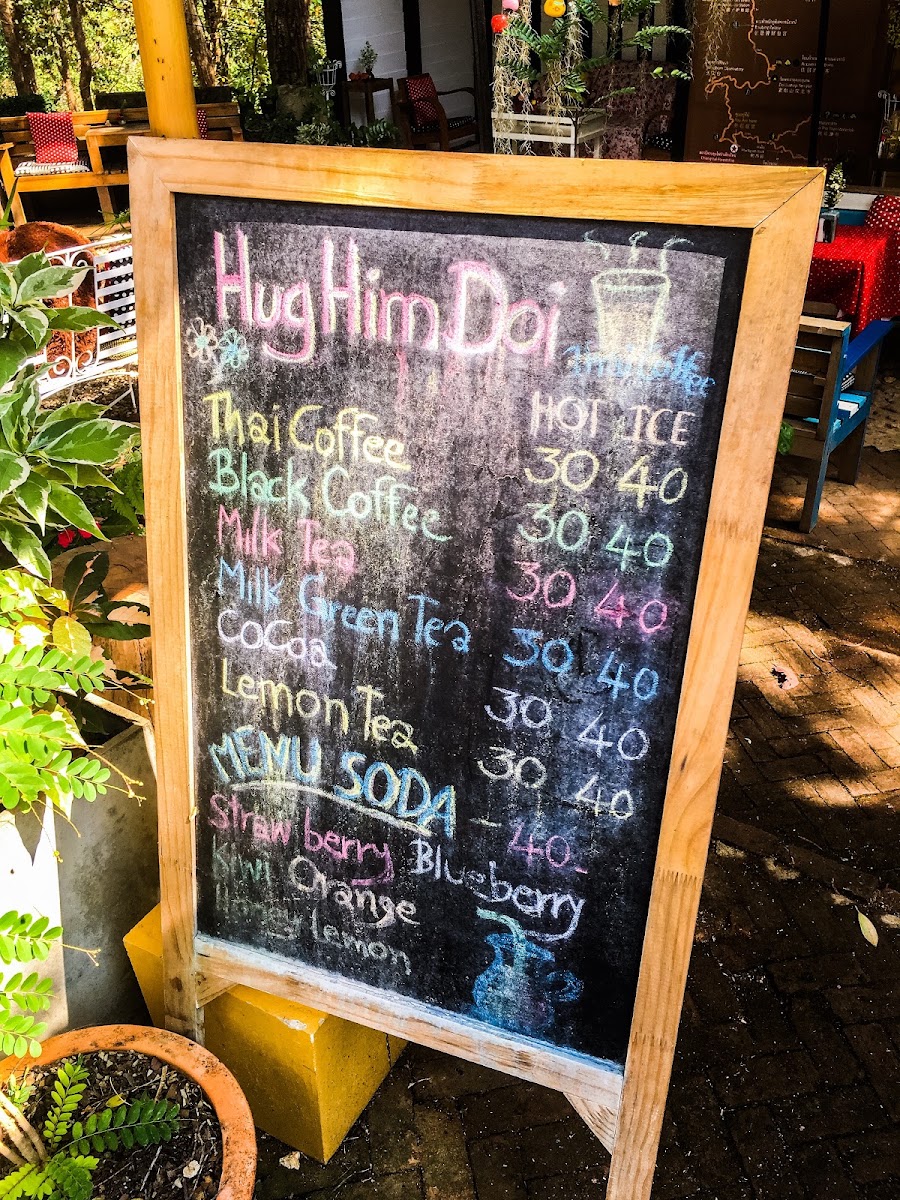 Hug Him Doi
HOT ICE
Thai Coffee 30 40
Black Coffee 30 40
Milk Tea 30 40
Milk Green Tea 30 40
Cocoa 30 40
Lemon Tea 30 40
MENU SODA - 40.-
Strawberry Blueberry
Kiwi Orange
Honey Lemon